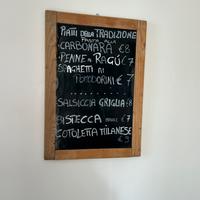 PIATTI DELLA TRADIZIONE
PASTA ALLA
CARBONARA €8
PENNE AL RAGÚ €7
SPAGHETTI AI
POMODORINI € 7
SALSICCIA GRIGLIA €8
BISTECCA MAIALE € 7
COTOLETTA MILANESE
€ 9